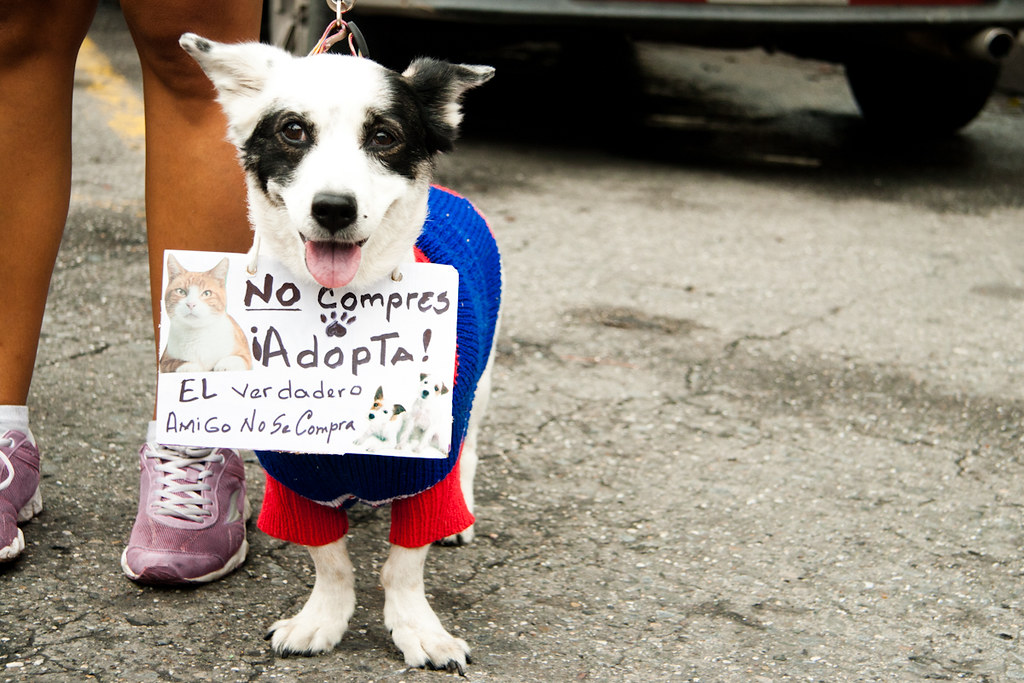 NO Compres
¡AdopTa!
EL Verdadero
AMiGo No Se Compra